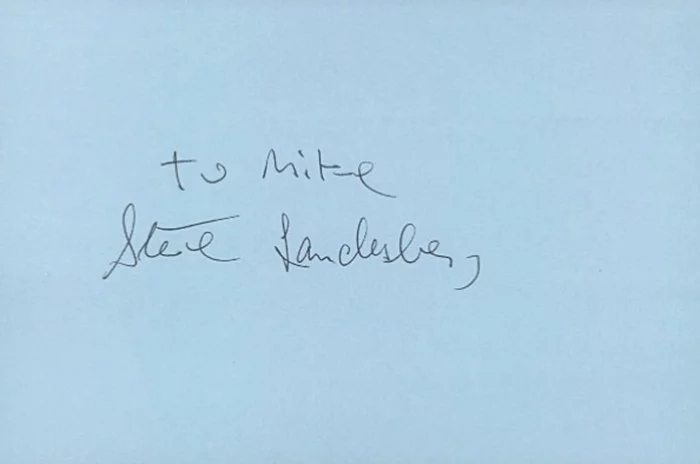 to Mike
Steve Landesberg